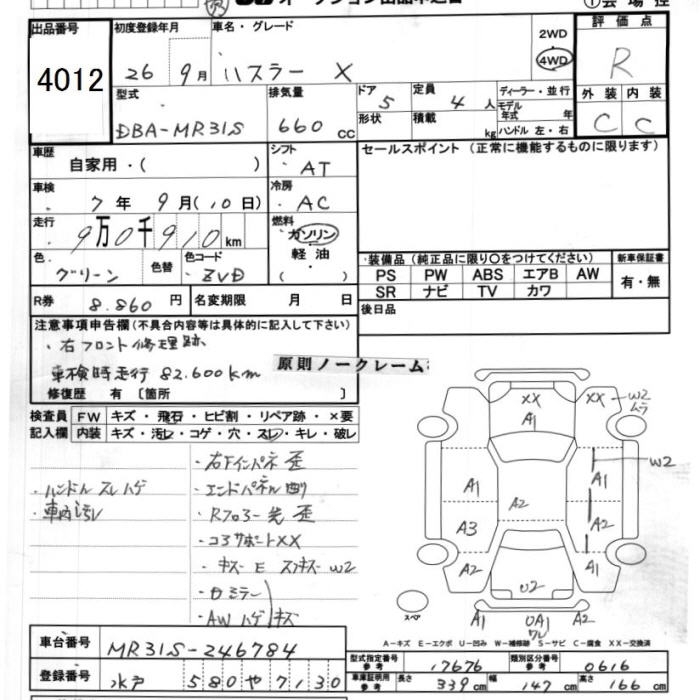 出品番号 初度登録年月 車名・グレード 2WD 評価点
4012 26 9月 ハスラー X 4WD R
型式 排気量 ドア 定員 ディーラー・並行 外装 内装
DBA-MR31S 660 cc 5 4人 モデル年式 年 C C
形状 積載 kg ハンドル 左・右
車歴 シフト セールスポイント（正常に機能するものに限ります）
自家用・（ ） AT
車検 冷房
7年 9月（10日） AC
走行 燃料
9万0千910km ガソリン
軽油
色 色替 色コード 装備品（純正品に限り○をつけてください） 新車保証書
グリーン ZVD PS PW ABS エアB AW 有・無
SR ナビ TV カワ
R券 8.860円 名変期限 月 日 後日品
注意事項申告欄（不具合内容等は具体的に記入して下さい）
・右フロント修理跡
原則ノークレーム
車検時走行 82.600km
修復歴 有〔箇所 〕
検査員 FW キズ・飛石・ヒビ割・リペア跡・×要
記入欄 内装 キズ・汚レ・コゲ・穴・スレ・キレ・破レ
・ハンドル スレ ハゲ
・車内汚レ
・右下インパネ 歪
・エンドパネル凹
・Rフロアー先 歪
・コアサポートXX
・キズ E スリキズ W2
・ロミラー
・AWハゲ キズ
XX XX W2 ムラ
A1
W2
A1 A1
A2
A3 A2
A2 A1
U2
スペア
A1 UA1 A2
ワレ
A-キズ E-エクボ U-凹み W-補修跡 S-サビ C-腐食 XX-交換済
車台番号 MR31S-246784
型式指定番号 参考 17676 類別区分番号 参考 0616
登録番号 水戸 580 や 7130
車庫証明用 参考 長さ 339cm 幅 147cm 高さ 166cm